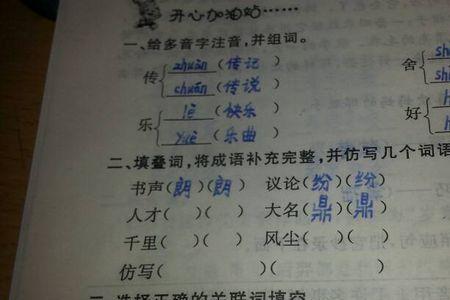 开心加油站……
一、给多音字注音，并组词。
传 zhuàn（传记） 舍 sh
chuán（传说） sh
乐 lè（快乐） 好 h
yuè（乐曲） h
二、填叠词，将成语补充完整，并仿写几个词语
书声（朗）（朗） 议论（纷）（纷）
人才（ ）（ ） 大名（鼎）（鼎）
千里（ ）（ ） 风尘（ ）（ ）
仿写（ ）（ ）
三、选择正确的关联词填空